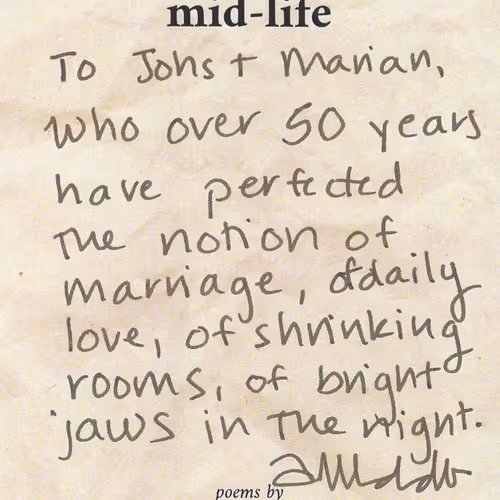 mid-life
To Johs + Marian,
who over 50 years
have perfected
the notion of
marriage, of daily
love, of shrinking
rooms, of bright
jaws in the night.
poems by